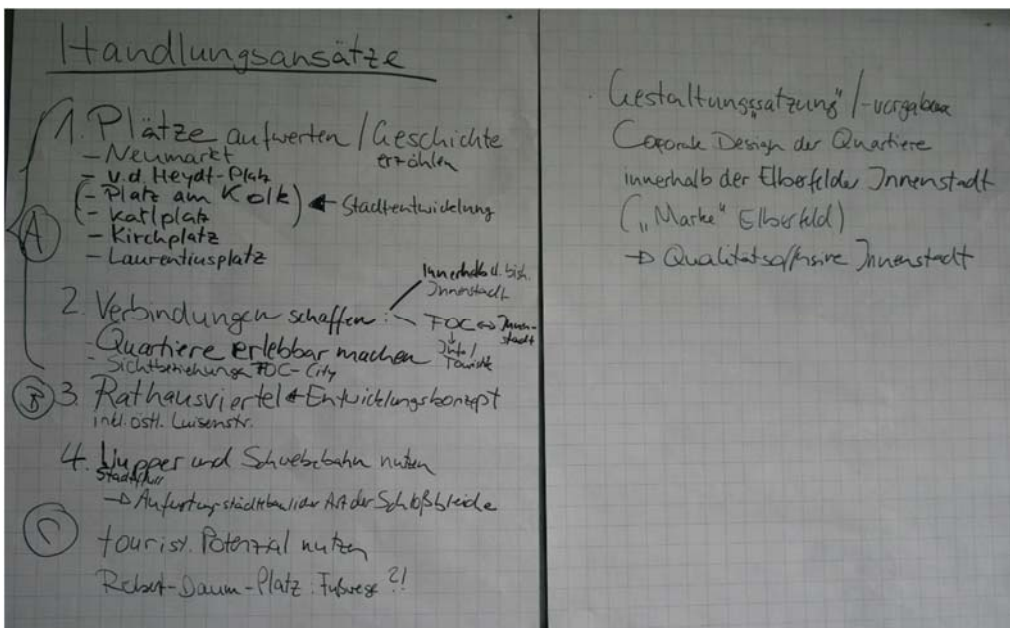 Handlungsansätze
1. Plätze aufwerten / Geschichte
erzählen
- Neumarkt
- v.d. Heydt-Platz
(- Platz am Kolk)
(- Karlplatz) ← Stadtentwicklung
- Kirchplatz
- Laurentiusplatz
A
2. Verbindungen schaffen :
Innerhalb d. bish.
Innenstadt
FOC ↔ Innen-
stadt
↓
Info /
Touristik
- Quartiere erlebbar machen
- Sichtbeziehung FOC - City
B 3. Rathausviertel ← Entwicklungskonzept
inkl. östl. Luisenstr.
4. Wupper und Schwebebahn nutzen
→ städtebaulicher Art der Schloßbleiche
C
tourist. Potenzial nutzen
Robert-Daum-Platz : Fußwege ?!
"Gestaltungssatzung" / -vorgaben
Design der Quartiere
innerhalb der Elberfelder Innenstadt
("Marke" Elberfeld)
→ Qualitätsoffensive Innenstadt